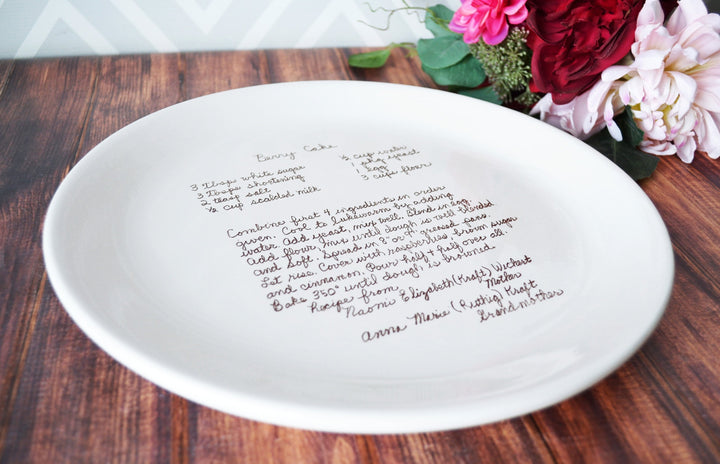 Berry Cake
3 Tbsp white sugar
3 Tbsps shortening
2 teasp salt
½ cup scalded milk
½ cup water
1 pkg yeast
1 egg
3 cups flour
Combine first 4 ingredients in order
given. Cool to lukewarm by adding
water. Add yeast, mix well. Blend in egg.
Add flour, mix until dough is well blended
and soft. Spread in 3 or 4 greased pans.
Let rise. Cover with raspberries, brown sugar
and cinnamon. Pour half + half over all.
Bake 350° until dough is browned.
Recipe from
Naomi Elizabeth (Kraft) Wichert
Mother
Anna Marie (Ruthig) Kraft
Grandmother